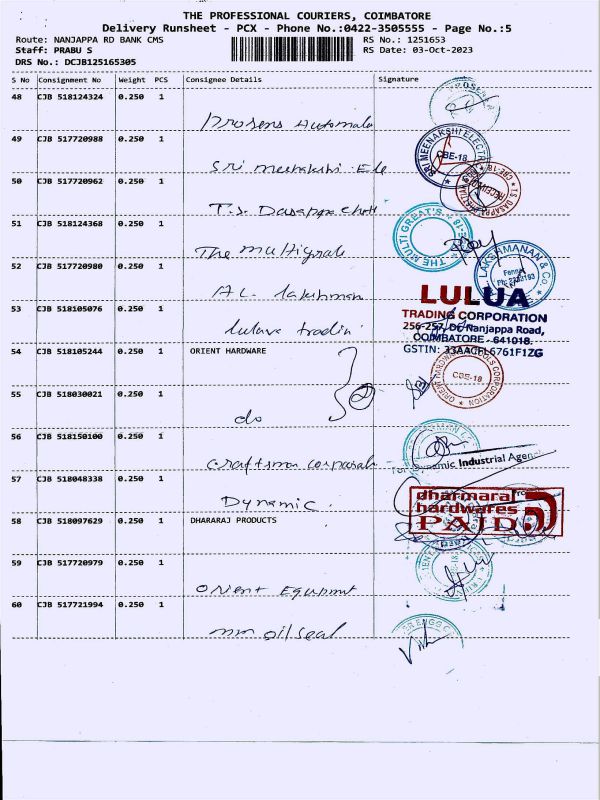 THE PROFESSIONAL COURIERS, COIMBATORE
Delivery Runsheet - PCX - Phone No.:0422-3505555 - Page No.:5
Route: NANJAPPA RD BANK CMS RS No.: 1251653
Staff: PRABU S RS Date: 03-Oct-2023
DRS No.: DCJB125165305
S No Consignment No Weight PCS Consignee Details Signature
48 CJB 518124324 0.250 1
49 CJB 517720988 0.250 1
Sri meenakshi Ele
SRI MEENAKSHI ELECTR
CBE-18
50 CJB 517720962 0.250 1
T.S. Dasappa chett
RECEIVED
T.S. DASAPPA
CBE-18
51 CJB 518124368 0.250 1
The multigreat
THE MULTI GREAT'S
52 CJB 517720980 0.250 1
AL. lakshmanan
LAKSHMANAN & Co.
53 CJB 518105076 0.250 1
tradin
LULUA
TRADING CORPORATION
256-257, Dr. Nanjappa Road,
COIMBATORE - 641018.
GSTIN: 33AACFL6761F1ZG
54 CJB 518105244 0.250 1 ORIENT HARDWARE
ORIENT HARDWARE TOOLS CORPORATION
CBE-18
55 CJB 518030021 0.250 1
do
56 CJB 518150100 0.250 1
Craftsman corporat
For Dynamic Industrial Agenc
57 CJB 518048338 0.250 1
Dynamic
dharmaraj
hardwares
PAID
58 CJB 518097629 0.250 1 DHARARAJ PRODUCTS
59 CJB 517720979 0.250 1
Orient Equipment
60 CJB 517721994 0.250 1
mm oil seal